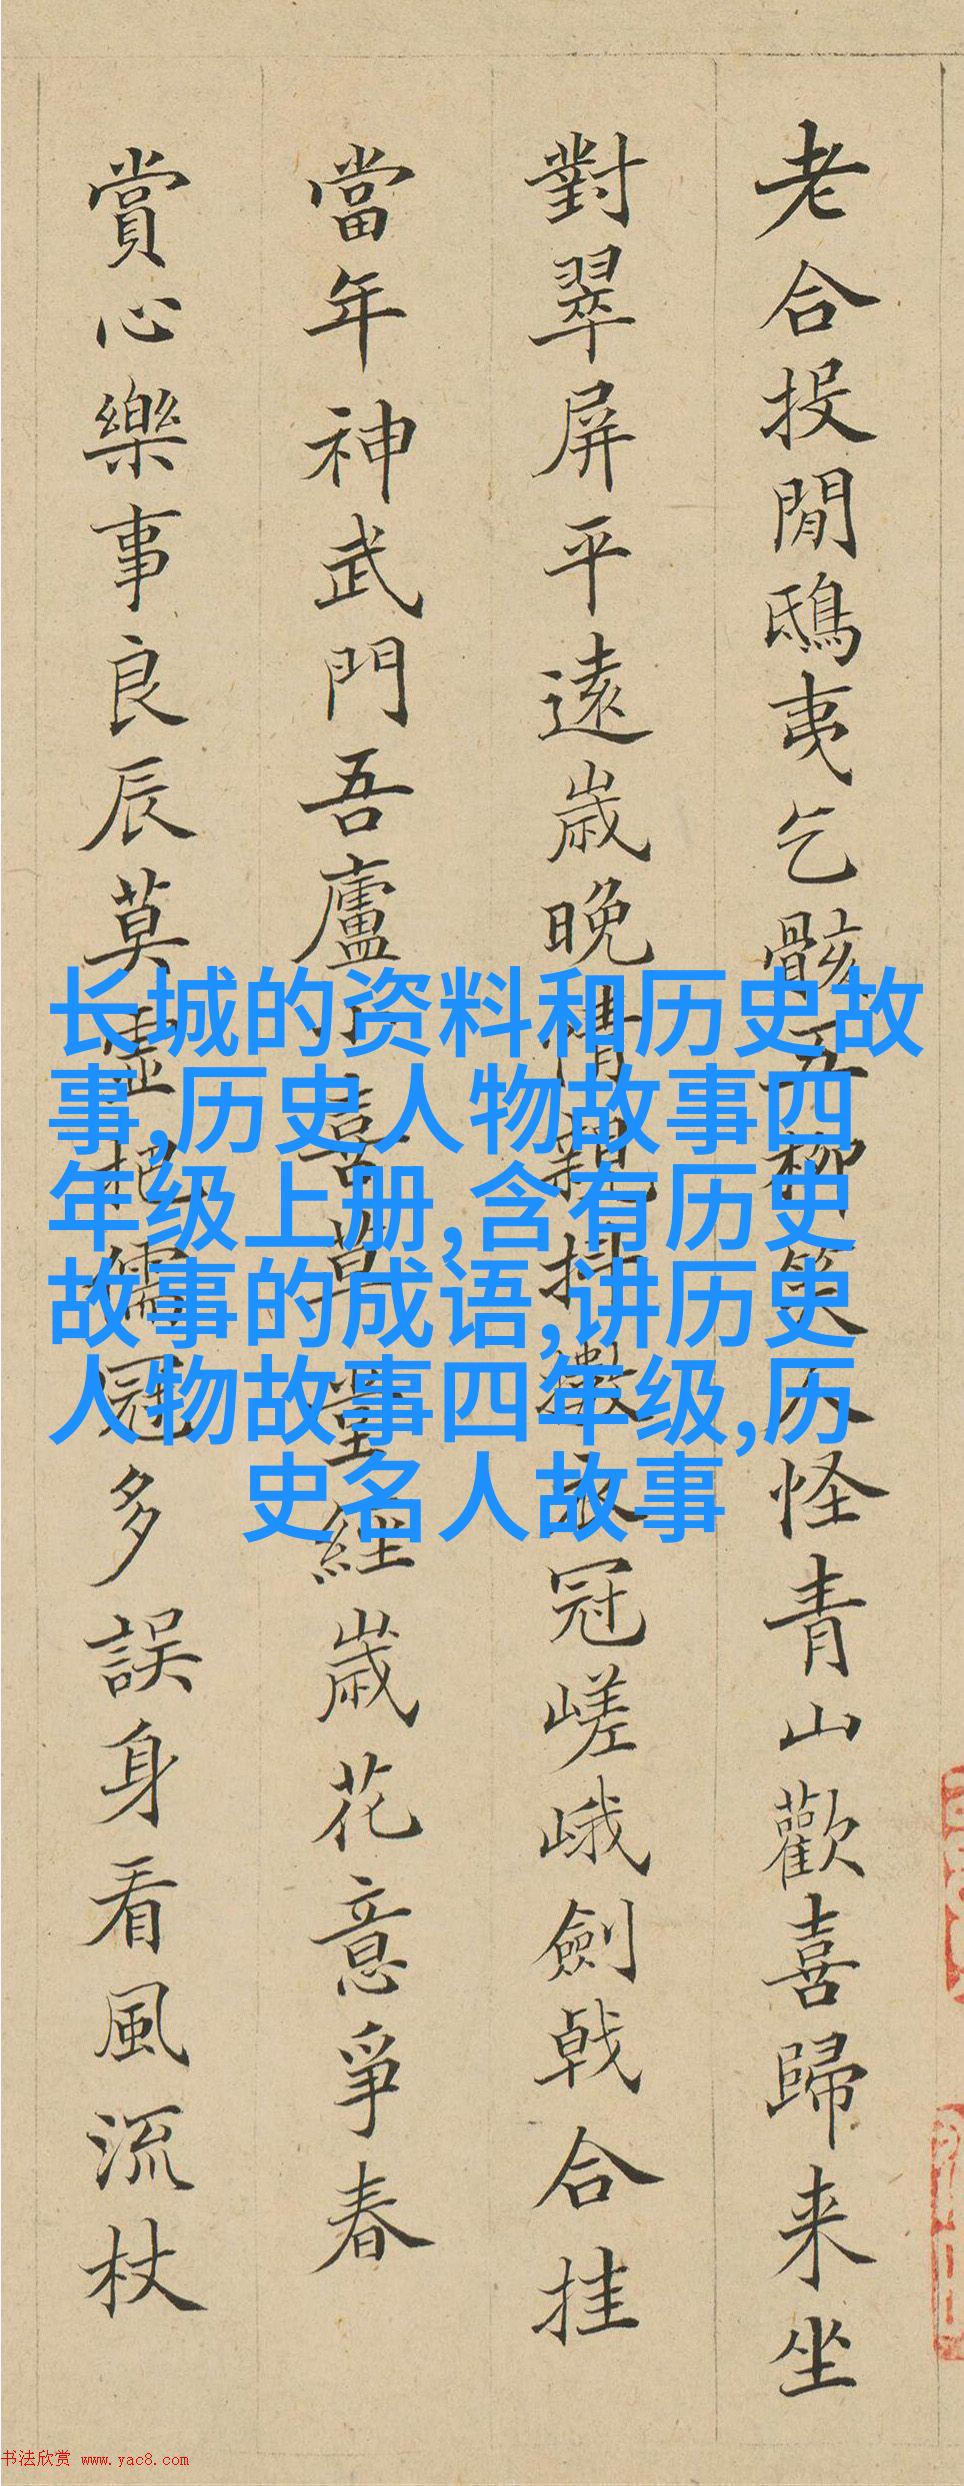 老合投閒鴟夷乞骸五柳笑人怪青山歡喜歸来坐
對翠屏平遠歲晚情親抖擻衣冠嵯峨劍戟合挂
當年神武門吾廬喜草堂經歲花意爭春
賞心樂事良辰莫虛把儒冠多誤身看風流杖
长城的资料和历史故
事,历史人物故事四
年级上册,含有历史
故事的成语,讲历史
人物故事四年级,历
史名人故事
书法欣赏 www.yac8.com